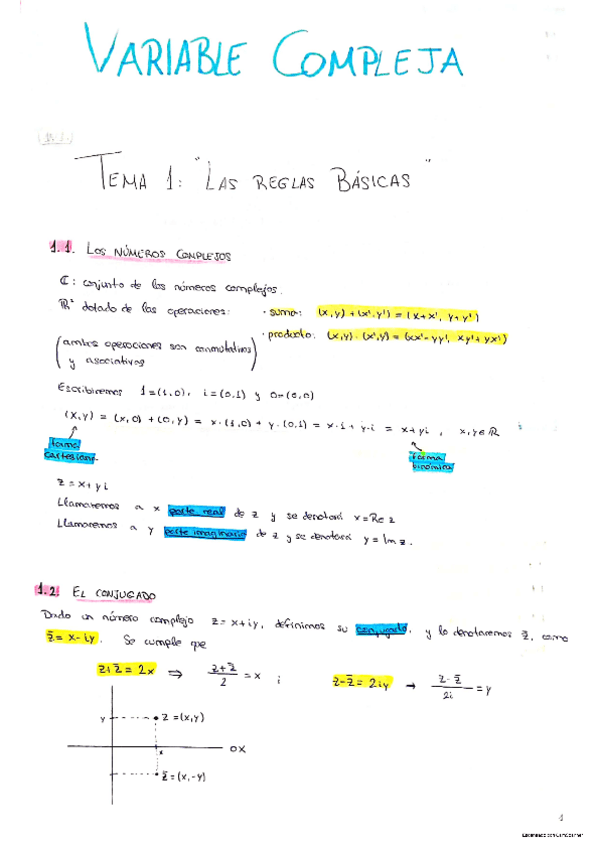 VARIABLE COMPLEJA
TEMA 1: "LAS REGLAS BÁSICAS"
1.1. LOS NÚMEROS COMPLEJOS
ℂ: conjunto de los números complejos.
ℝ² dotado de las operaciones: · suma: (x,y) + (x',y') = (x+x', y+y')
· producto: (x,y)·(x',y') = (xx'-yy', xy'+yx')
(ambas operaciones son conmutativas
y asociativas)
Escribiremos 1=(1,0), i=(0,1) y 0=(0,0)
(x,y) = (x,0) + (0,y) = x·(1,0) + y·(0,1) = x·1 + y·i = x+yi, x,y∈ℝ
forma cartesiana
forma binómica
z = x+yi
Llamaremos a x parte real de z y se denotará x=Re z
Llamaremos a y parte imaginaria de z y se denotará y = Im z.
1.2. EL CONJUGADO
Dado un número complejo z = x+iy, definimos su conjugado, y lo denotaremos z̄, como
z̄ = x-iy. Se cumple que
z+z̄ = 2x ⇒ (z+z̄)/2 = x ; z-z̄ = 2iy → (z-z̄)/2i = y
y z=(x,y)
x OX
z̄=(x,-y)
1